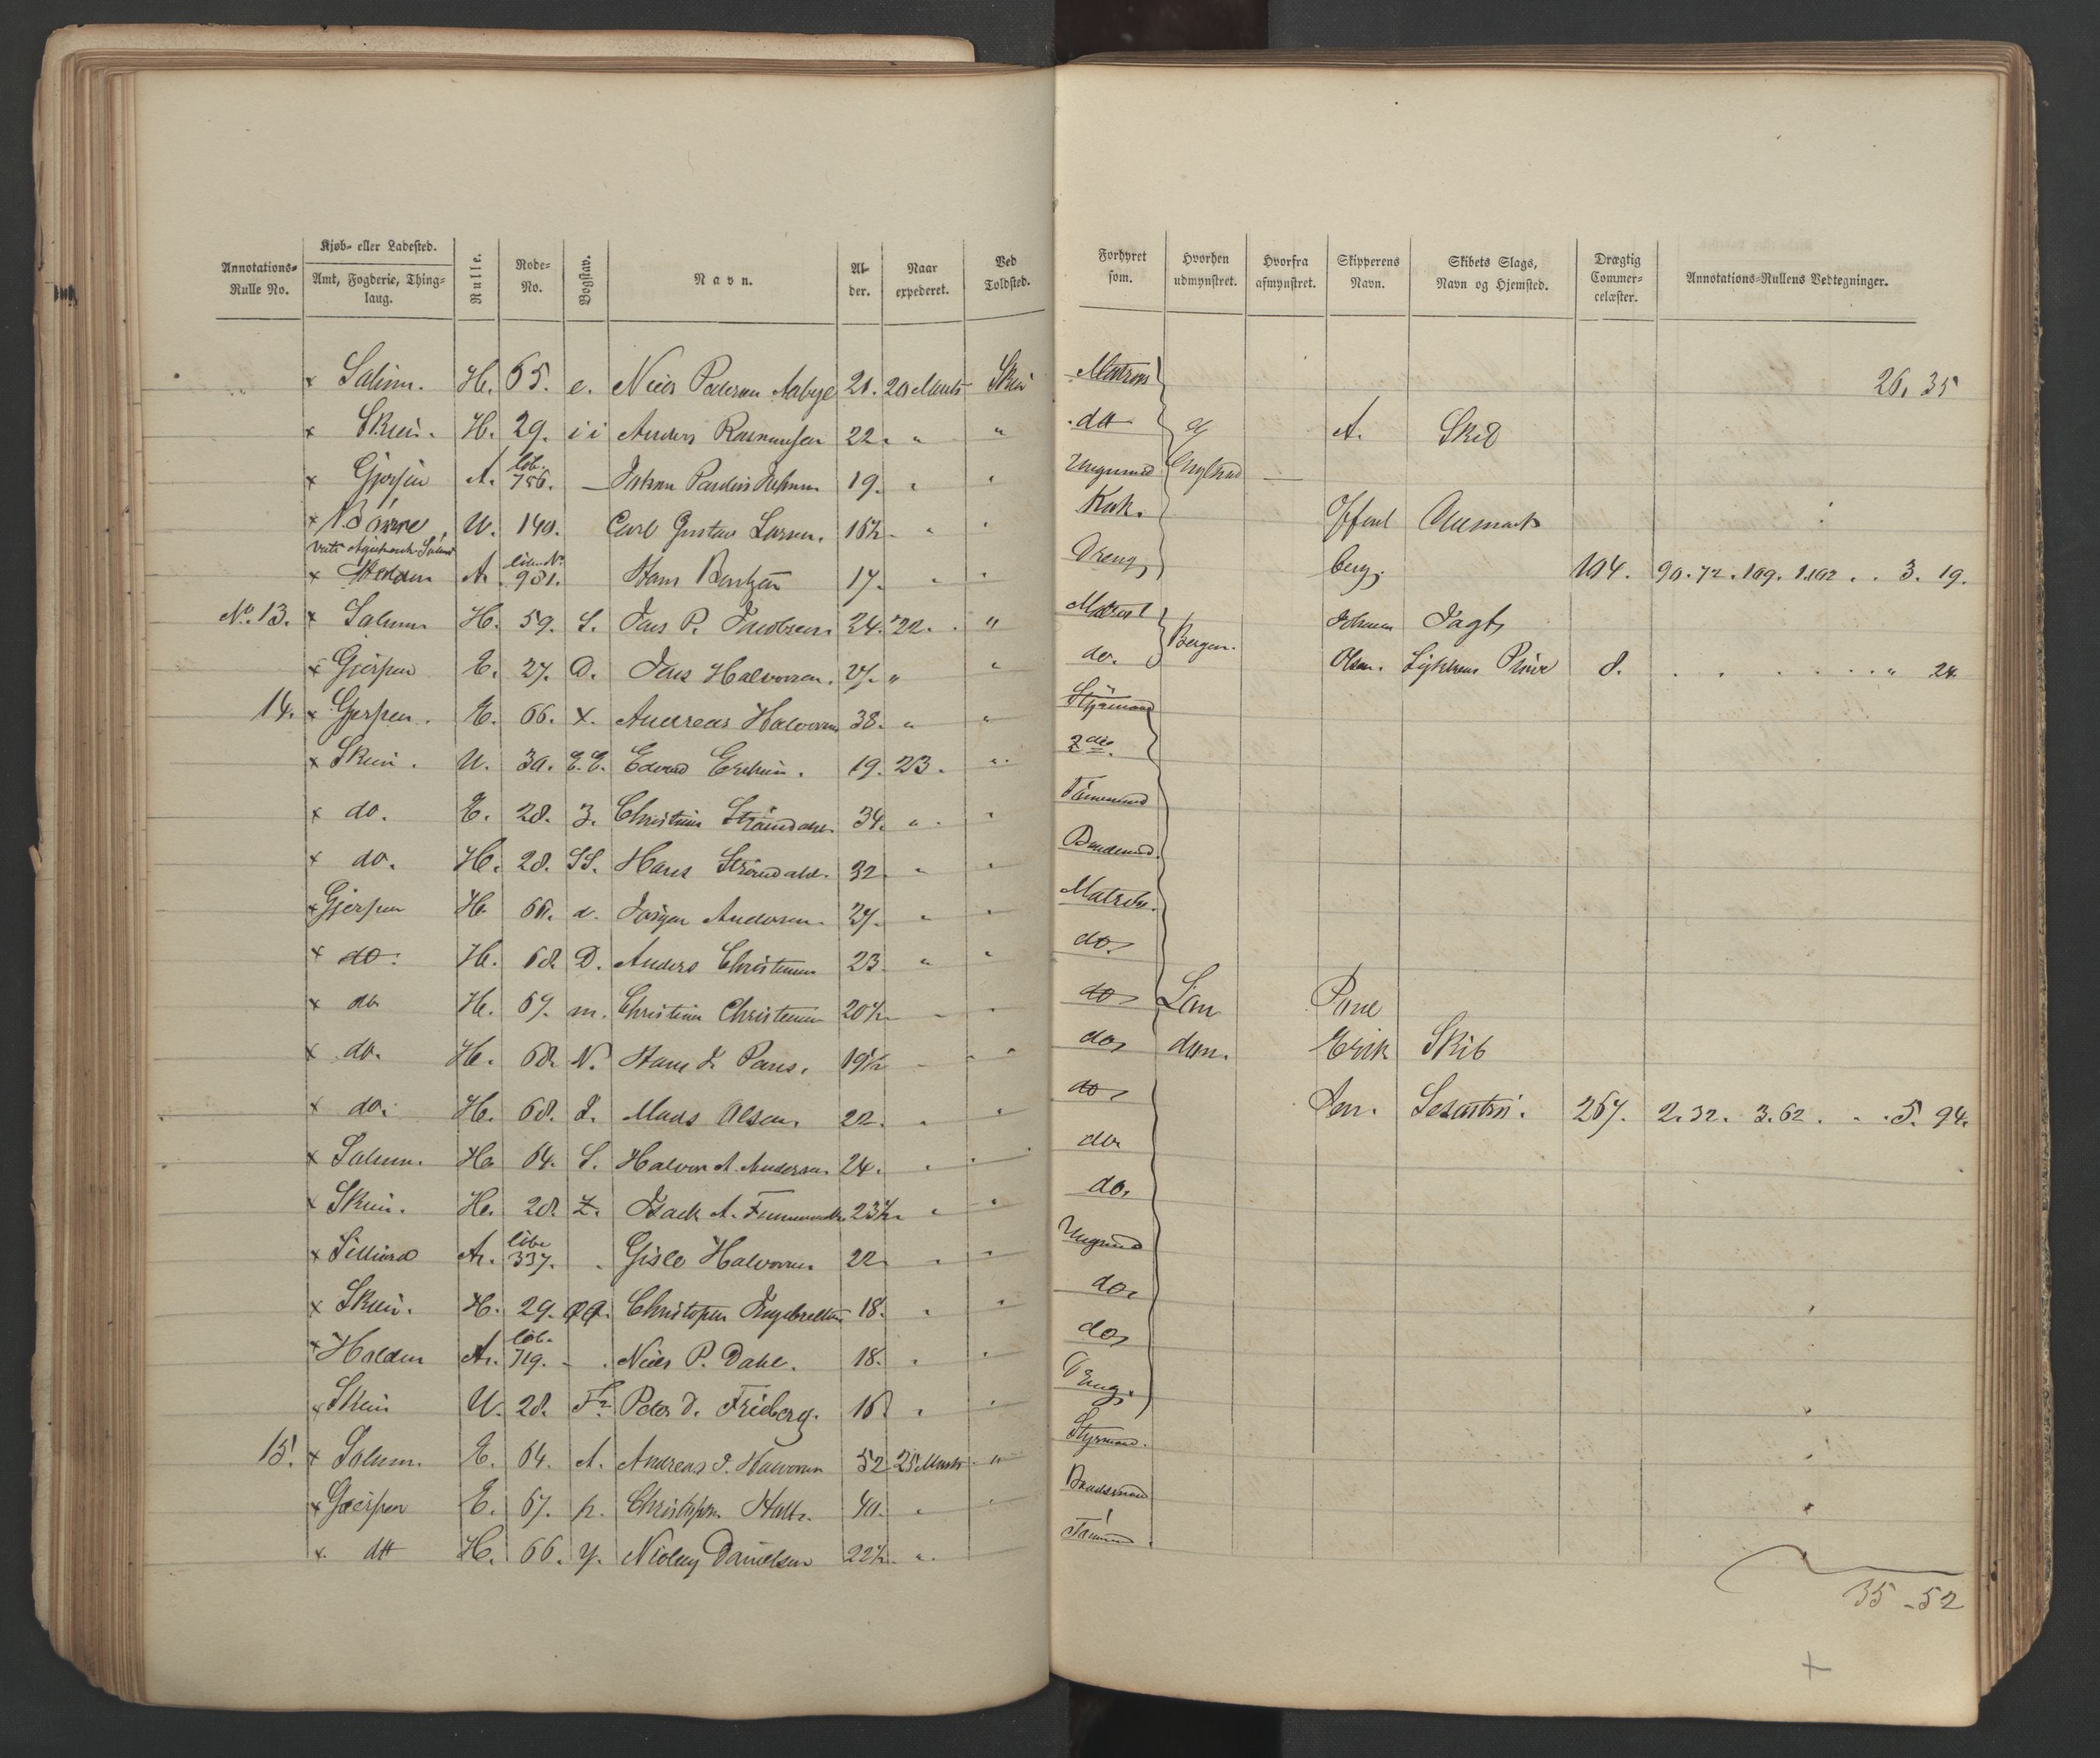 Annotations-Rulle No. | Kjøb- eller Ladested. Amt, Fogderie, Thinglaug. | Rulle. | Rode-No. | Bogstav. | Navn. | Alder. | Naar expederet. | Ved Toldsted. | Forhyret som. | Hvorhen udmynstret. | Hvorfra afmynstret. | Skipperens Navn. | Skibets Slags, Navn og Hjemsted. | Drægtig Commercelæster. | Annotations-Rullens Vedtegninger.
x Solum. H. 65. e. Niels Pedersen Aabye 21. 20 Marts Skien Matros 26. 35
x Skien. H. 29. ii Anders Rasmussen 22. " " dtt A. Skib
x Gjerpen A. 756. Johan 19. " " Ungmand
x U. 140. Carl Gustav Larsen. 16½ " " Kok.
x A. 981. Hans Bentzen 17. " " Dreng berg. 104. 90. 72. 109. 1.102 . . 3. 19.
No. 13. x Solum H. 59. S. Jens P. Jacobsen 24. 22. " Matros Bergen. Johan Jagt
x Gjerpen E. 27. D. Jens Halvorsen. 27. " " do. Olsen. 8. " 24
14. x Gjerpen. E. 66. x. Andreas Halvorsen 38. " " Styrmand
x Skien. U. 30. E.E. Edvard Eriksen. 19. 23. " 2den
x do. E. 28. 3. Christian Strömdahl. 34. " " Tömmermd
x do. H. 28. SS. Hans Strömdahl. 32 " " Baadsmd.
x Gjerpen H. 66. a. Jörgen Andersen. 27. " " Matros.
x do. H. 68. D. Anders Christensen 23. " " do.
x do H. 67. m. Christian Christensen 20½ " " do Lon
x do. H. 68. N. Hans 19½ " " do, don. Erik Skib
x do. H. 68. J. Mads Olsen. 22. " " do 267. 2.32. 3.62. . . 5. 94.
x Solum. H. 64. S. Halvor A. Andersen 24. " " do
x Skien. H. 28. Z. Isack A. 23½ " " do.
x Lilliesand A. 337. Gisle Halvorsen 22 " " Ungmd
x Skien. H. 29. QQ. Christopher Ingebretsen 18. " " do.
x Holden A. 719. Niels P. Dahl. 18. " " do,
x Skien U. 28. Peder D. Frieberg. 16 " " Dreng.
15. x Solum. E. 64. A. Andreas J. Halvorsen 52 25 Marts " Styrmand.
x Gjerpen E. 67. p. Christopher 40. " " Baadsmand
x dtt H. 66. y. Nicolay Danielsen 22½ " Tömmd
35 - 52